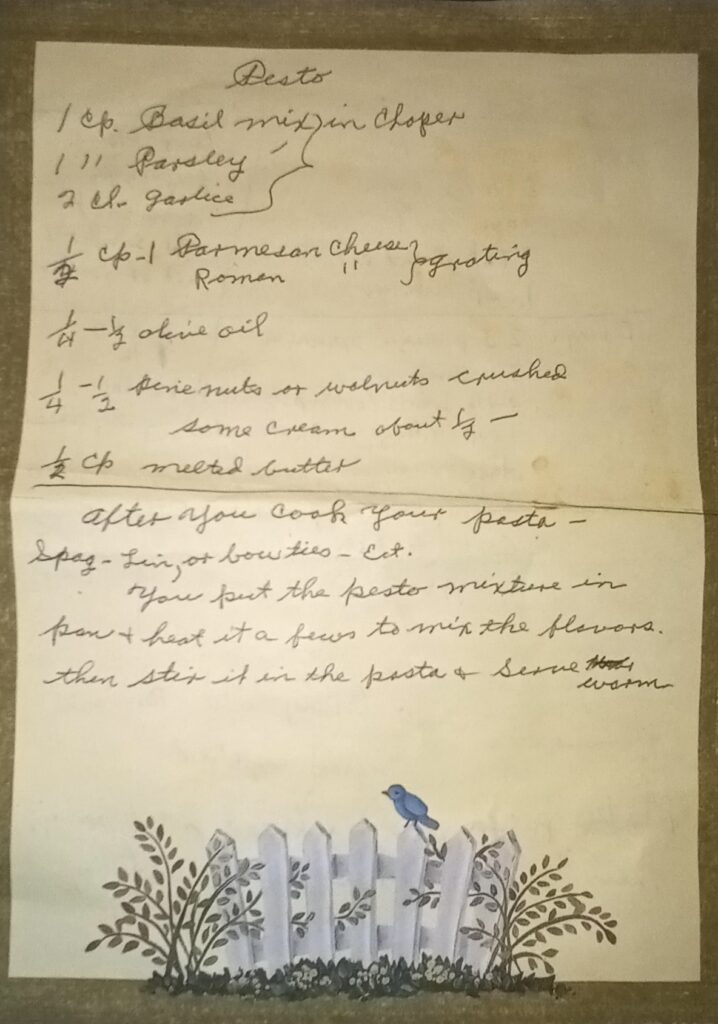 Pesto
1 cp. Basil mix } in Choper
1 " Parsley
2 cl. garlice
1/2 cp-1 Parmesan Cheese } grating
Roman "
1/4 - 1/2 olive oil
1/4 - 1/2 Pine nuts or walnuts crushed
some cream about 1/2 —
1/2 cp melted butter
After You Cook Your pasta -
Spag - Lin, or bow ties - Ect.
You put the pesto mixture in
pan & heat it a fews to mix the flavors.
then stir it in the pasta & Serve
warm